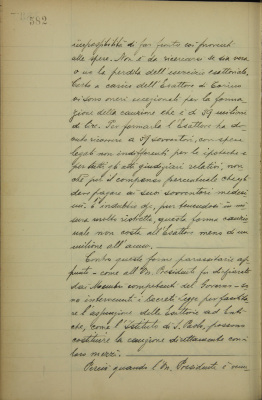 582
impossibilità di far fronte coi proventi
alle spese. Non è da ricercare se sia vera
o no la perdita dell'esercizio esattoriale,
Certo a carico dell'Esattore di Torino
vi sono oneri eccezionali per la forma-
zione della cauzione che è di 87 milioni
di lire. Per formarla l'Esattore ha do-
vuto ricorrere a 87 sovventori, con spese
legali non indifferenti per le ipoteche e
per tutti gli atti giudiziari relativi, non
chè per il compenso percentuale ch'egli
deve pagare ai suoi sovventori medesi-
mi. È indubbio che, pur tenendosi in mi-
sura molto ristretta, questa forma cauzio-
nale non costa all'Esattore meno di un
milione all'anno.
Contro queste forme parassitarie ap-
punto - come all'On. Presidente fu dichiarato
dai Membri competenti del Governo - so-
no intervenuti i decreti legge per facilita-
re l'assunzione delle Esattorie ad Enti
che, come l'Istituto di S. Paolo, possono
costituire la cauzione direttamente con
loro mezzi.
Perciò quando l'On. Presidente